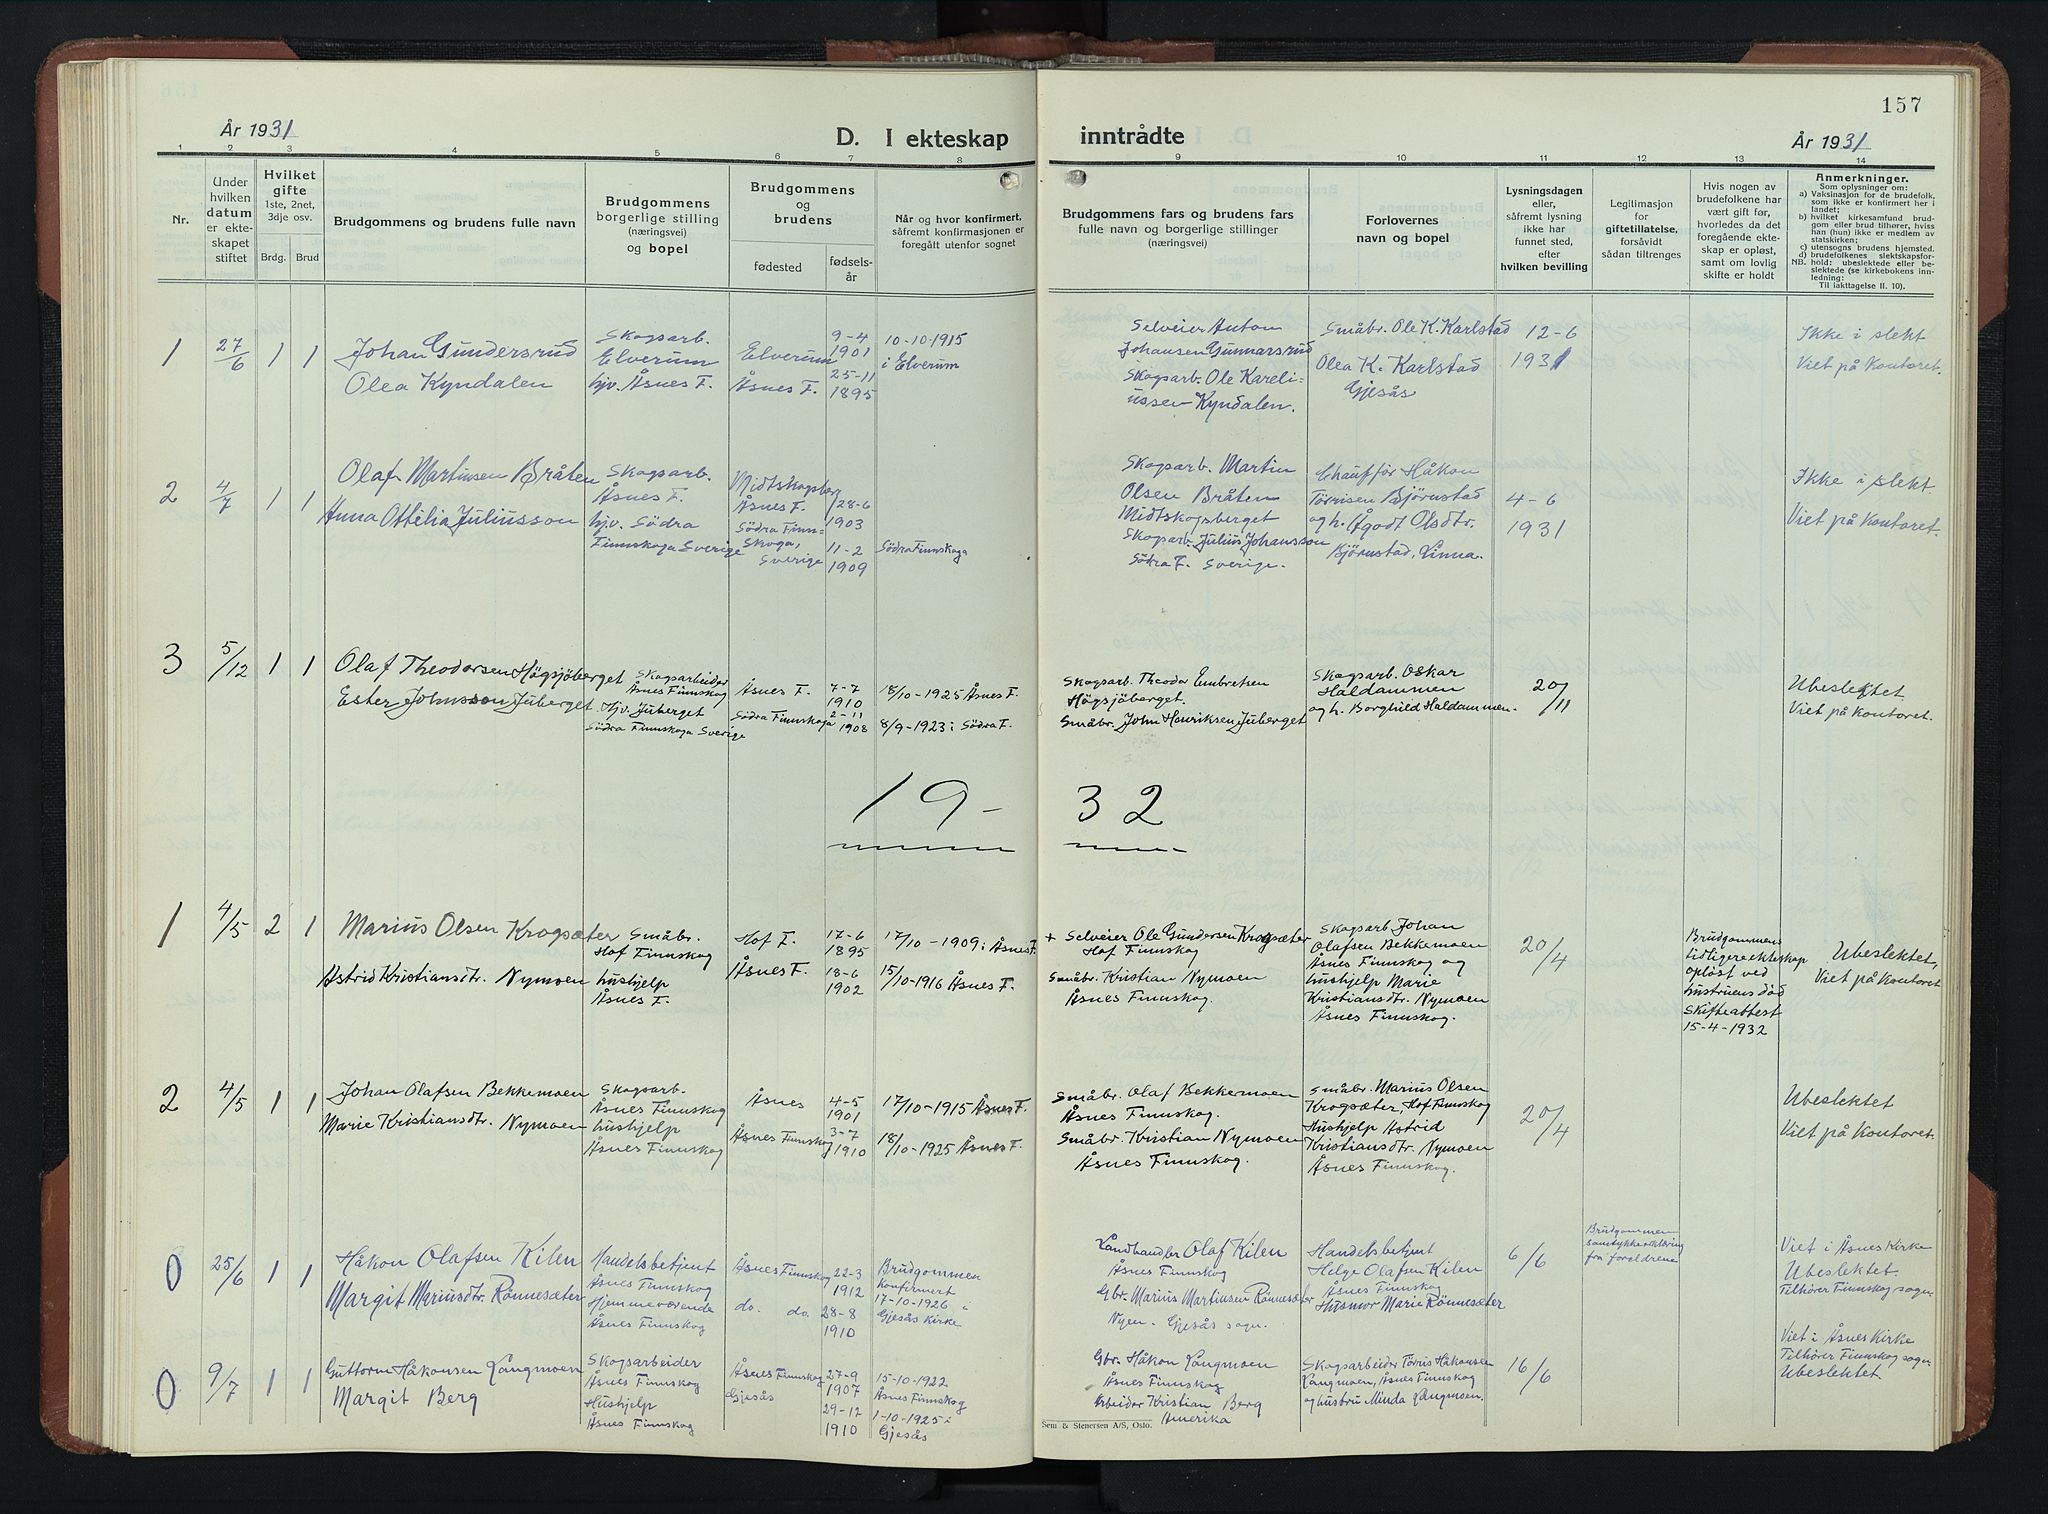 157
År 1931
D. I ekteskap inntrådte
År 1931
1 2 3 4 5 6 7 8 9 10 11 12 13 14
Nr.
Under hvilken datum er ekteskapet stiftet
Hvilket gifte 1ste, 2net, 3dje osv.
Brdg. Brud
Brudgommens og brudens fulle navn
Brudgommens borgerlige stilling (næringsvei) og bopel
Brudgommens og brudens
fødested
fødselsår
Når og hvor konfirmert, såfremt konfirmasjonen er foregått utenfor sognet
Brudgommens fars og brudens fars fulle navn og borgerlige stillinger (næringsvei)
Forlovernes navn og bopel
Lysningsdagen eller, såfremt lysning ikke har funnet sted, efter hvilken bevilling
Legitimasjon for giftetillatelse, forsåvidt sådan tiltrenges
Hvis nogen av brudefolkene har vært gift før, hvorledes da det foregående ekteskap er opløst, samt om lovlig skifte er holdt
Anmerkninger.
Som oplysninger om:
a) Vaksinasjon for de brudefolk, som ikke er konfirmert her i landet;
b) hvilket kirkesamfund brudgom eller brud tilhører, hviss han (hun) ikke er medlem av statskirken;
c) utensogns brudens hjemsted.
d) brudefolkenes slektskapsforhold: ubeslektede eller beslektede (se kirkebokens innledning:
NB.
Til iakttagelse II. 10).
1 27/6 1 1
Johan Gundersrud
Olea Kyndalen
Skogsarb.
Elverum
hjv. Åsnes F.
Elverum
Åsnes F.
9-4
1901
25-11
1895
10-10-1915
i Elverum
Selveier Anton
Johansen Gunnarsrud
Skogsarb. Ole Kareli-
ussen Kyndalen.
Småbr. Ole K. Karlstad
Olea K. Karlstad
Gjesås
12-6
1931
Ikke i slekt
Viet på Kontoret.
2 4/7 1 1
Olaf Martinsen Bråten
Anna Othelia Juliusson
Skogsarb.
Åsnes F.
hjv. Södra
Finnskoga Sverige
Midtskogberg
Åsnes F.
Södra Finn-
Skoga,
Sverige
28-6
1903
11-2
1909
Södra Finnskoga
Skogsarb. Martin
Olsen Bråten
Midtskogsberget
Skogsarb. Julius Johansson
Södra F. Sverige.
Chauffør Håkon
Tørrisen Bjørnstad
og h. Ågodt Olsdtr.
Bjørnstad, Linna.
4-6
1931
Ikke i slekt.
Viet på Kontoret.
3 5/12 1 1
Olaf Theodorsen Högsjöberget
Ester Johnsson Juberget
Skogsarbeider
Åsnes Finnskog
Hjv. Juberget
Södra Finnskoga Sverige
Åsnes F.
Södra Finnskoga
7-7
1910
2-11
1908
18/10-1925 Åsnes F.
8/9-1923 i Södra F.
Skogsarb. Theodor Embretsen
Högsjöberget.
Småbr. John Henriksen Juberget
Skogsarb. Oskar
Haldammen
og h. Borghild Haldammen.
20/11
Ubeslektet
Viet på Kontoret.
19-32
1 4/5 2 1
Marius Olsen Krogsæter
Astrid Kristiansdtr. Nymoen
Småbr.
Hof Finnskog
hushjelp
Åsnes F.
Hof F.
Åsnes F.
17-6
1895
18-6
1902
17/10-1909 i Åsnes F.
15/10-1916 Åsnes F.
+ Selveier Ole Gundersen Krogsæter
Hof Finnskog
Småbr. Kristian Nymoen
Åsnes Finnskog.
Skogsarb Johan
Olafsen Bekkemoen
Åsnes Finnskog og
hushjelp Marie
Kristiansdtr. Nymoen
Åsnes Finnskog.
20/4
Brudgommens
tidligere ekteskap
opløst ved
hustruens död
Skifteattest
15-4-1932
Ubeslektet,
Viet på Kontoret
2 4/5 1 1
Johan Olafsen Bekkemoen
Marie Kristiansdtr. Nymoen
Skogsarb.
Åsnes Finnskog
hushjelp
Åsnes Finnskog
Åsnes
Åsnes Finnskog
4-5
1901
3-7
1910
17/10-1915 Åsnes F.
18/10-1925 Åsnes F.
Småbr. Olaf Bekkemoen
Åsnes Finnskog.
Småbr. Kristian Nymoen
Åsnes Finnskog.
Småbr. Marius Olsen
Krogsæter, Hof Finnskog
Hushjelp Astrid
Kristiansdtr. Nymoen
Åsnes Finnskog.
20/4
Ubeslektet
Viet på Kontoret.
0 25/6 1 1
Håkon Olafsen Kilen
Margit Mariusdtr. Rönnesæter
Handelsbetjent
Åsnes Finnskog
Hjemmeværende
Åsnes Finnskog
Åsnes Finnskog
do. do.
22-3
1912
28-8
1910
Brudgommen
Konfirmert
17-10-1926 i
Gjesås Kirke
Landhandler Olaf Kilen
Åsnes Finnskog
Gbr. Marius Martinsen Rönnesæter
Nyen - Gjesås sogn.
Handelsbetjent
Helge Olafsen Kilen
Åsnes Finnskog
Husmor Marie Rönnesæter
6/6
Brudgommen
samtykkeerklæring
fra foreldrene
Viet i Åsnes Kirke
Ubeslektet.
Tilhører Finnskog sogn
0 9/7 1 1
Guttorm Håkonsen Langmoen
Margit Berg
Skogsarbeider
Åsnes Finnskog
Hushjelp
Åsnes Finnskog
Åsnes Finnskog
Gjesås
27-9
1907
29-12
1910
15-10-1922
Åsnes Finnskog
1-10-1925 i
Gjesås
Gbr. Håkon Langmoen
Åsnes Finnskog
Arbeider Kristian Berg
Amerika
Skogsarbeider Tørris Håkonsen
Langmoen, Åsnes Finnskog
og hustru Minda Langmoen.
16/6
Viet i Åsnes Kirke
Tilhører Finnskog sogn
Ubeslektet.
Sem & Stenersen A/S, Oslo.